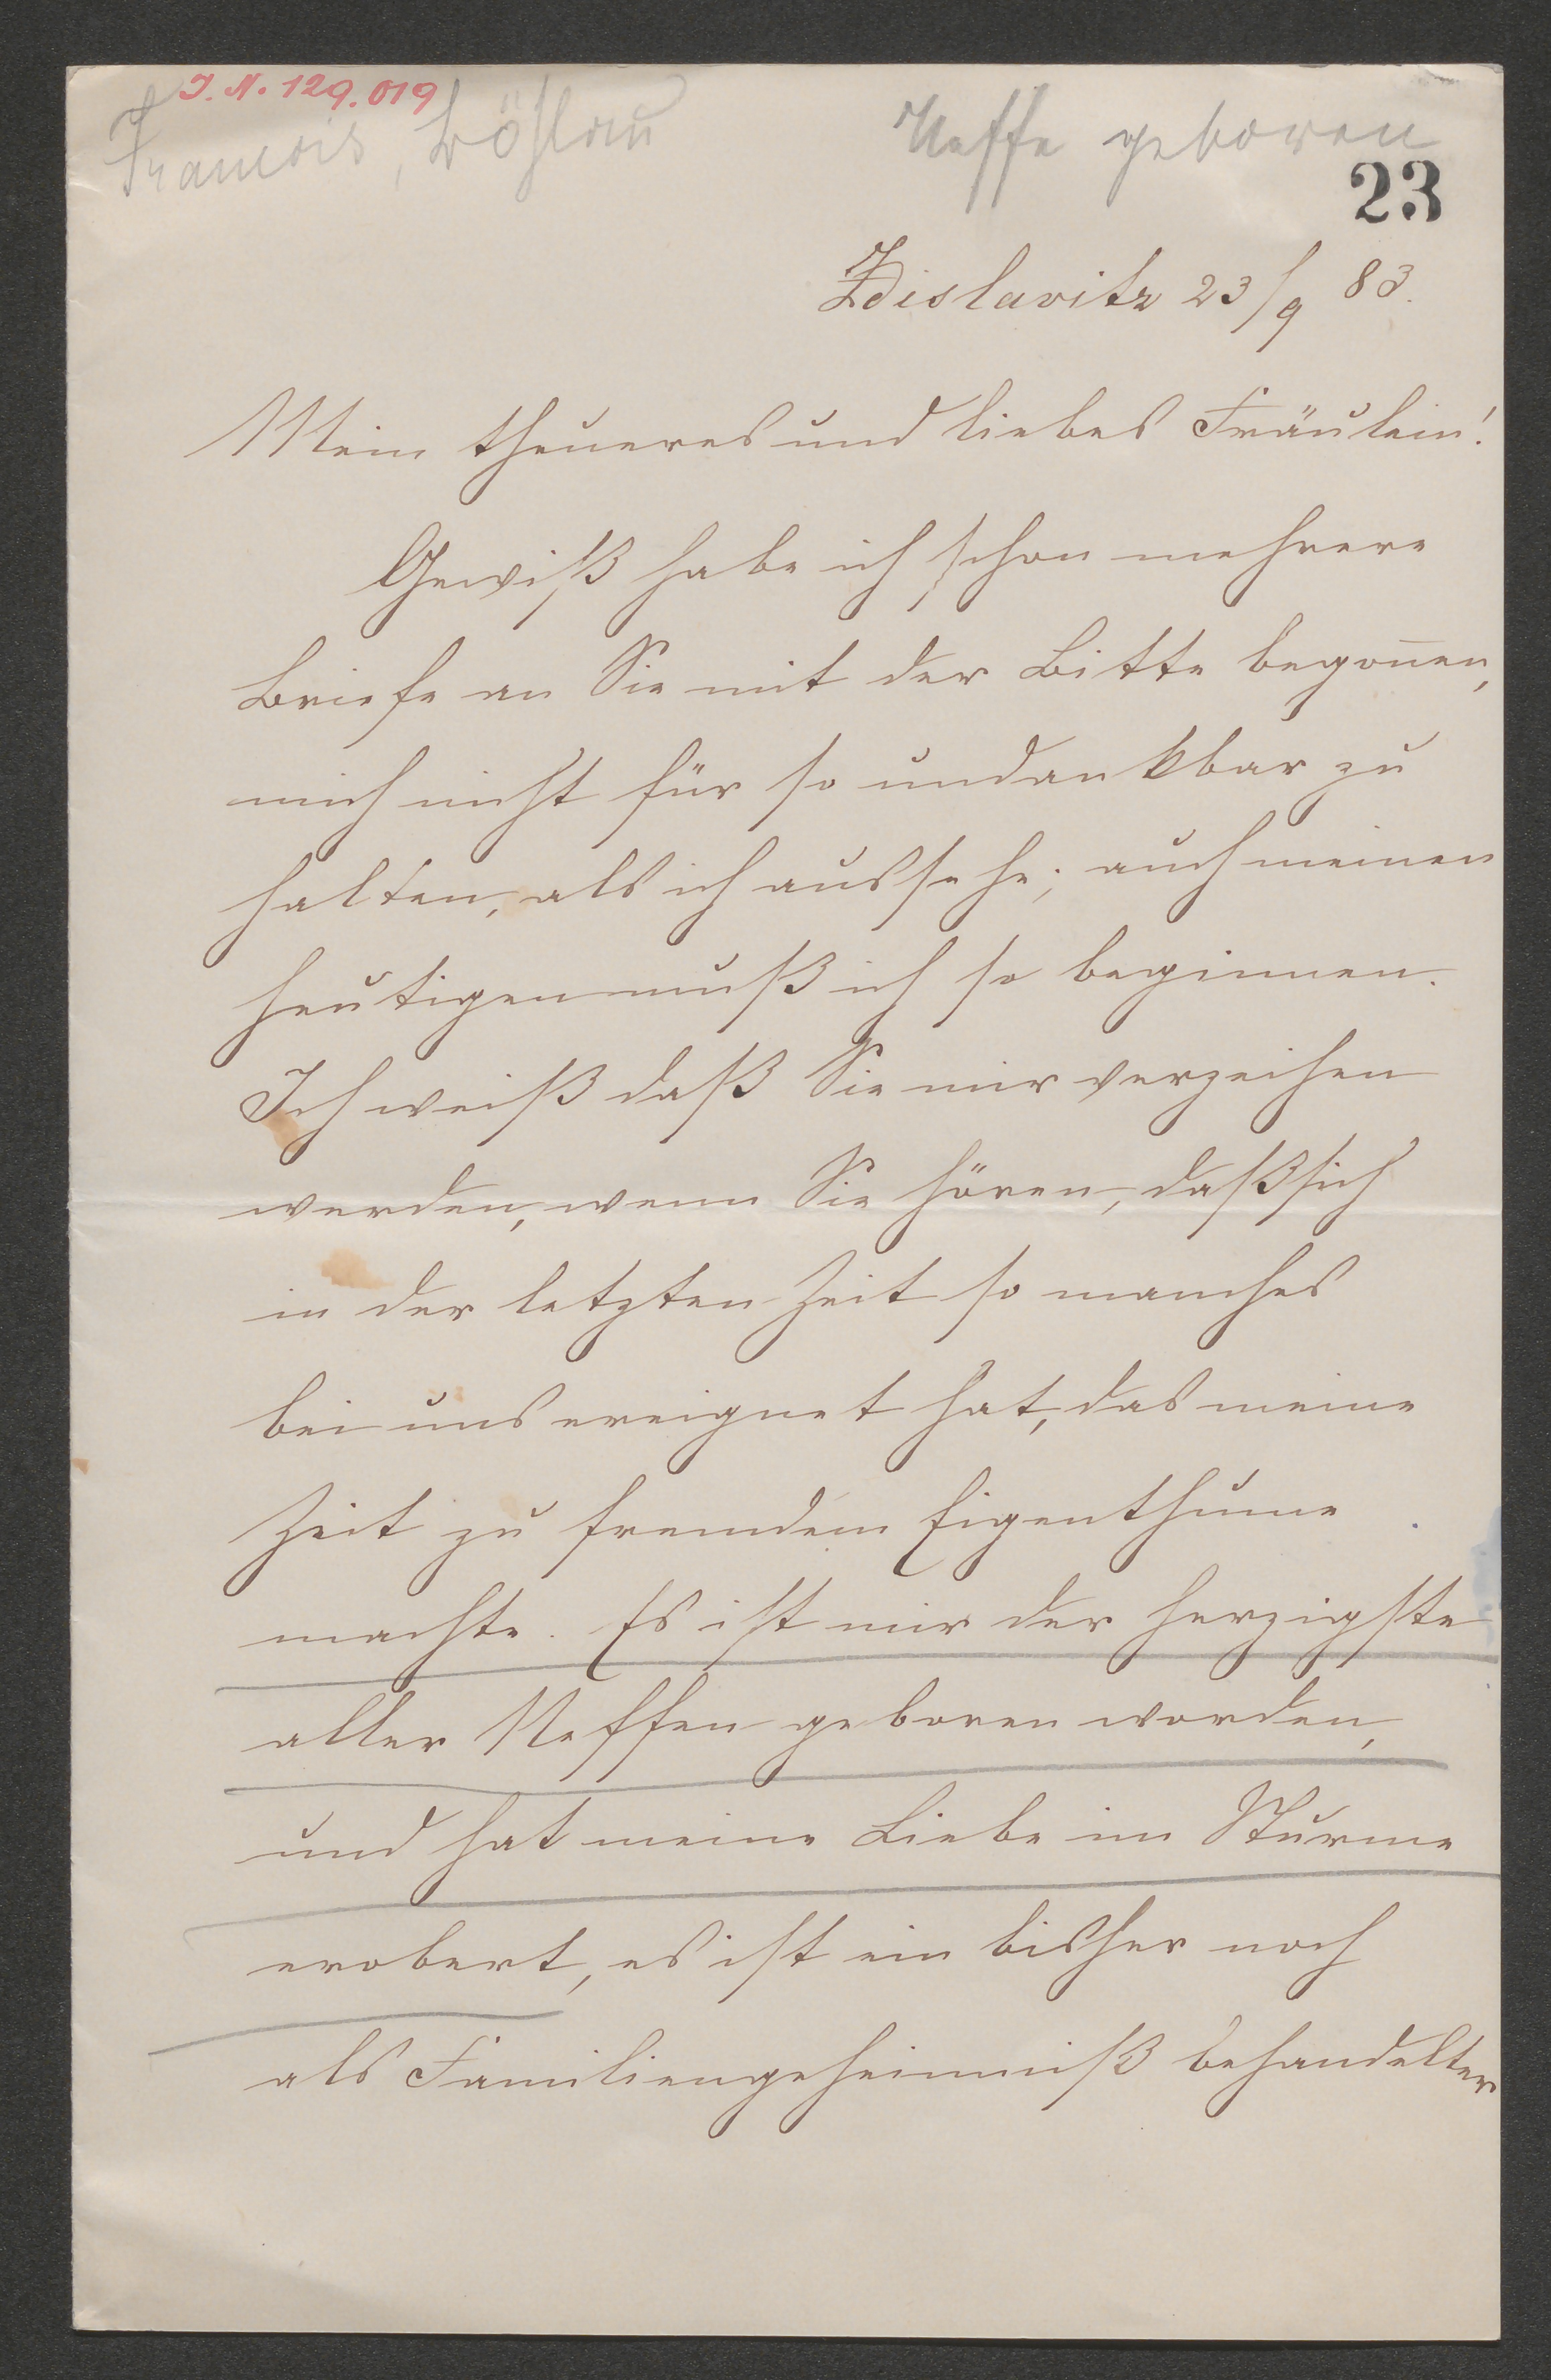 J. N. 129.019
Francois, Böhlau
Neffe geboren
23
Zdislavitz 23/9 83.
Mein theueres und liebes Fräulein!
Gewiß habe ich schon mehrere
Briefe an Sie mit der Bitte begon̄en,
mich nicht für so undankbar zu
halten, als ich aussehe; auch meinen
heutigen muß ich so beginnen.
Ich weiß daß Sie mir verzeihen
werden, wenn Sie hören, daß sich
in der letzten Zeit so manches
bei uns ereignet hat, das meine
Zeit zu fremdem Eigenthume
machte. Es ist mir der herzigste
aller Neffen geboren worden,
und hat meine Liebe im Sturme
erobert, es ist ein bisher noch
als Familiengeheimniß behandelter